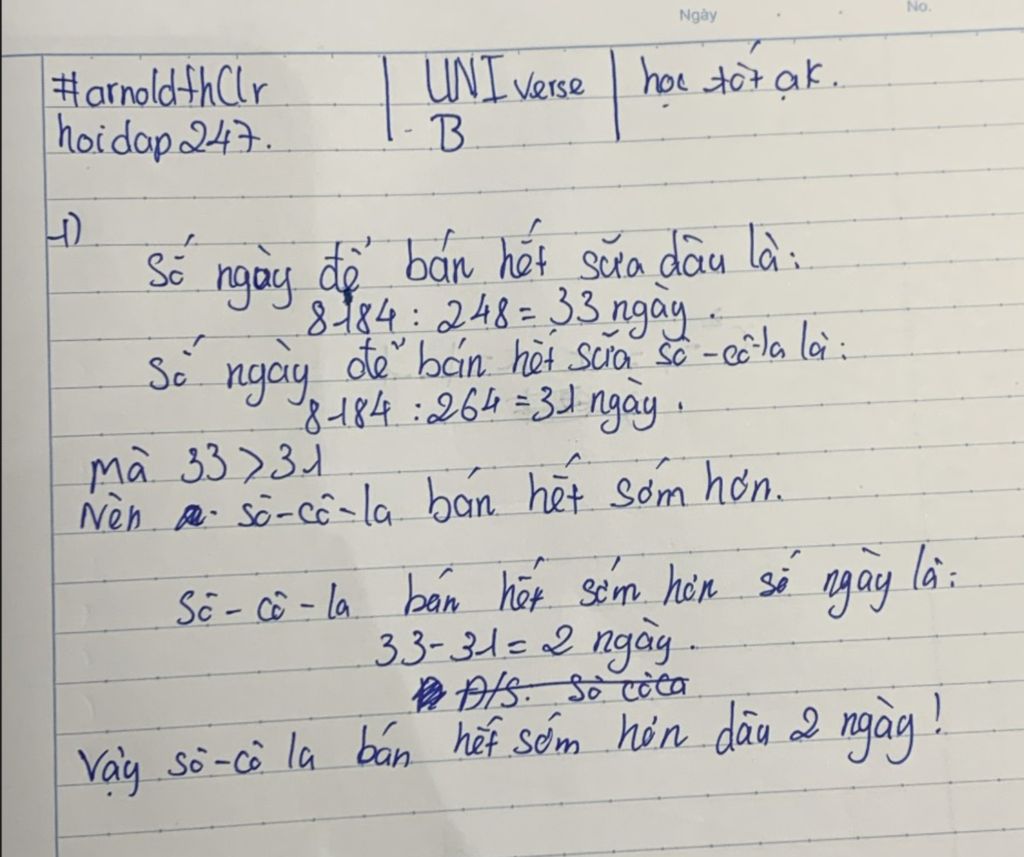 Ngày No.
#arnoldfhClr | UNIverse | học tốt ạk.
hoidap247. B
1)
Số ngày để bán hết sữa dâu là:
8184 : 248 = 33 ngày.
Số ngày để bán hết sữa sô-cô-la là:
8184 : 264 = 31 ngày.
Mà 33 > 31
Nên sô-cô-la bán hết sớm hơn.
Sô-cô-la bán hết sớm hơn số ngày là:
33 - 31 = 2 ngày.
Đ/S: Sô côla
Vậy sô-cô la bán hết sớm hơn dâu 2 ngày!